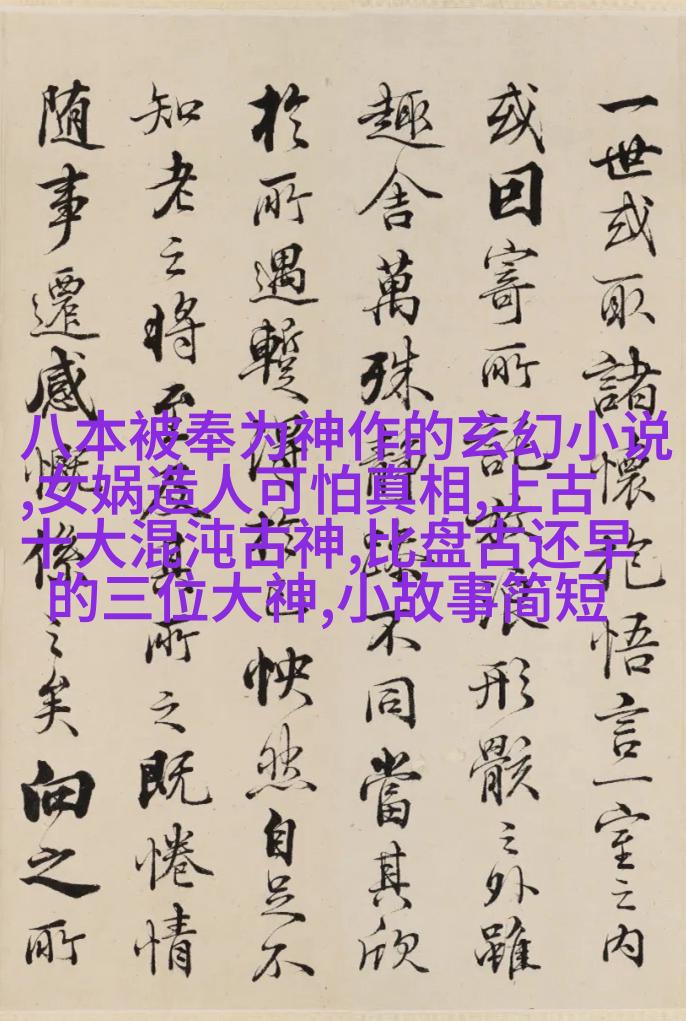 一世或取諸懷抱悟言一室之内
或因寄所託放浪形骸之外雖
趣舍萬殊靜躁不同當其欣
於所遇暫得於己怏然自足不
知老之將至及其所之既惓情
随事遷感慨係之矣向之所
八本被奉为神作的玄幻小说
,女娲造人可怕真相,上古
十大混沌古神,比盘古还早
的三位大神,小故事简短